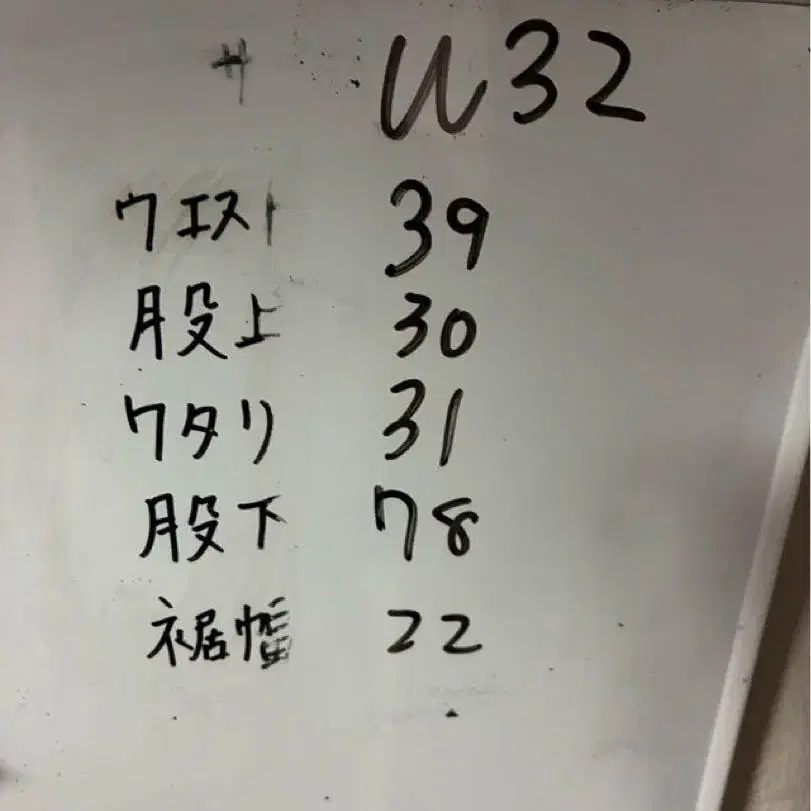 W32
ウエスト 39
股上 30
ワタリ 31
股下 78
裾幅 22